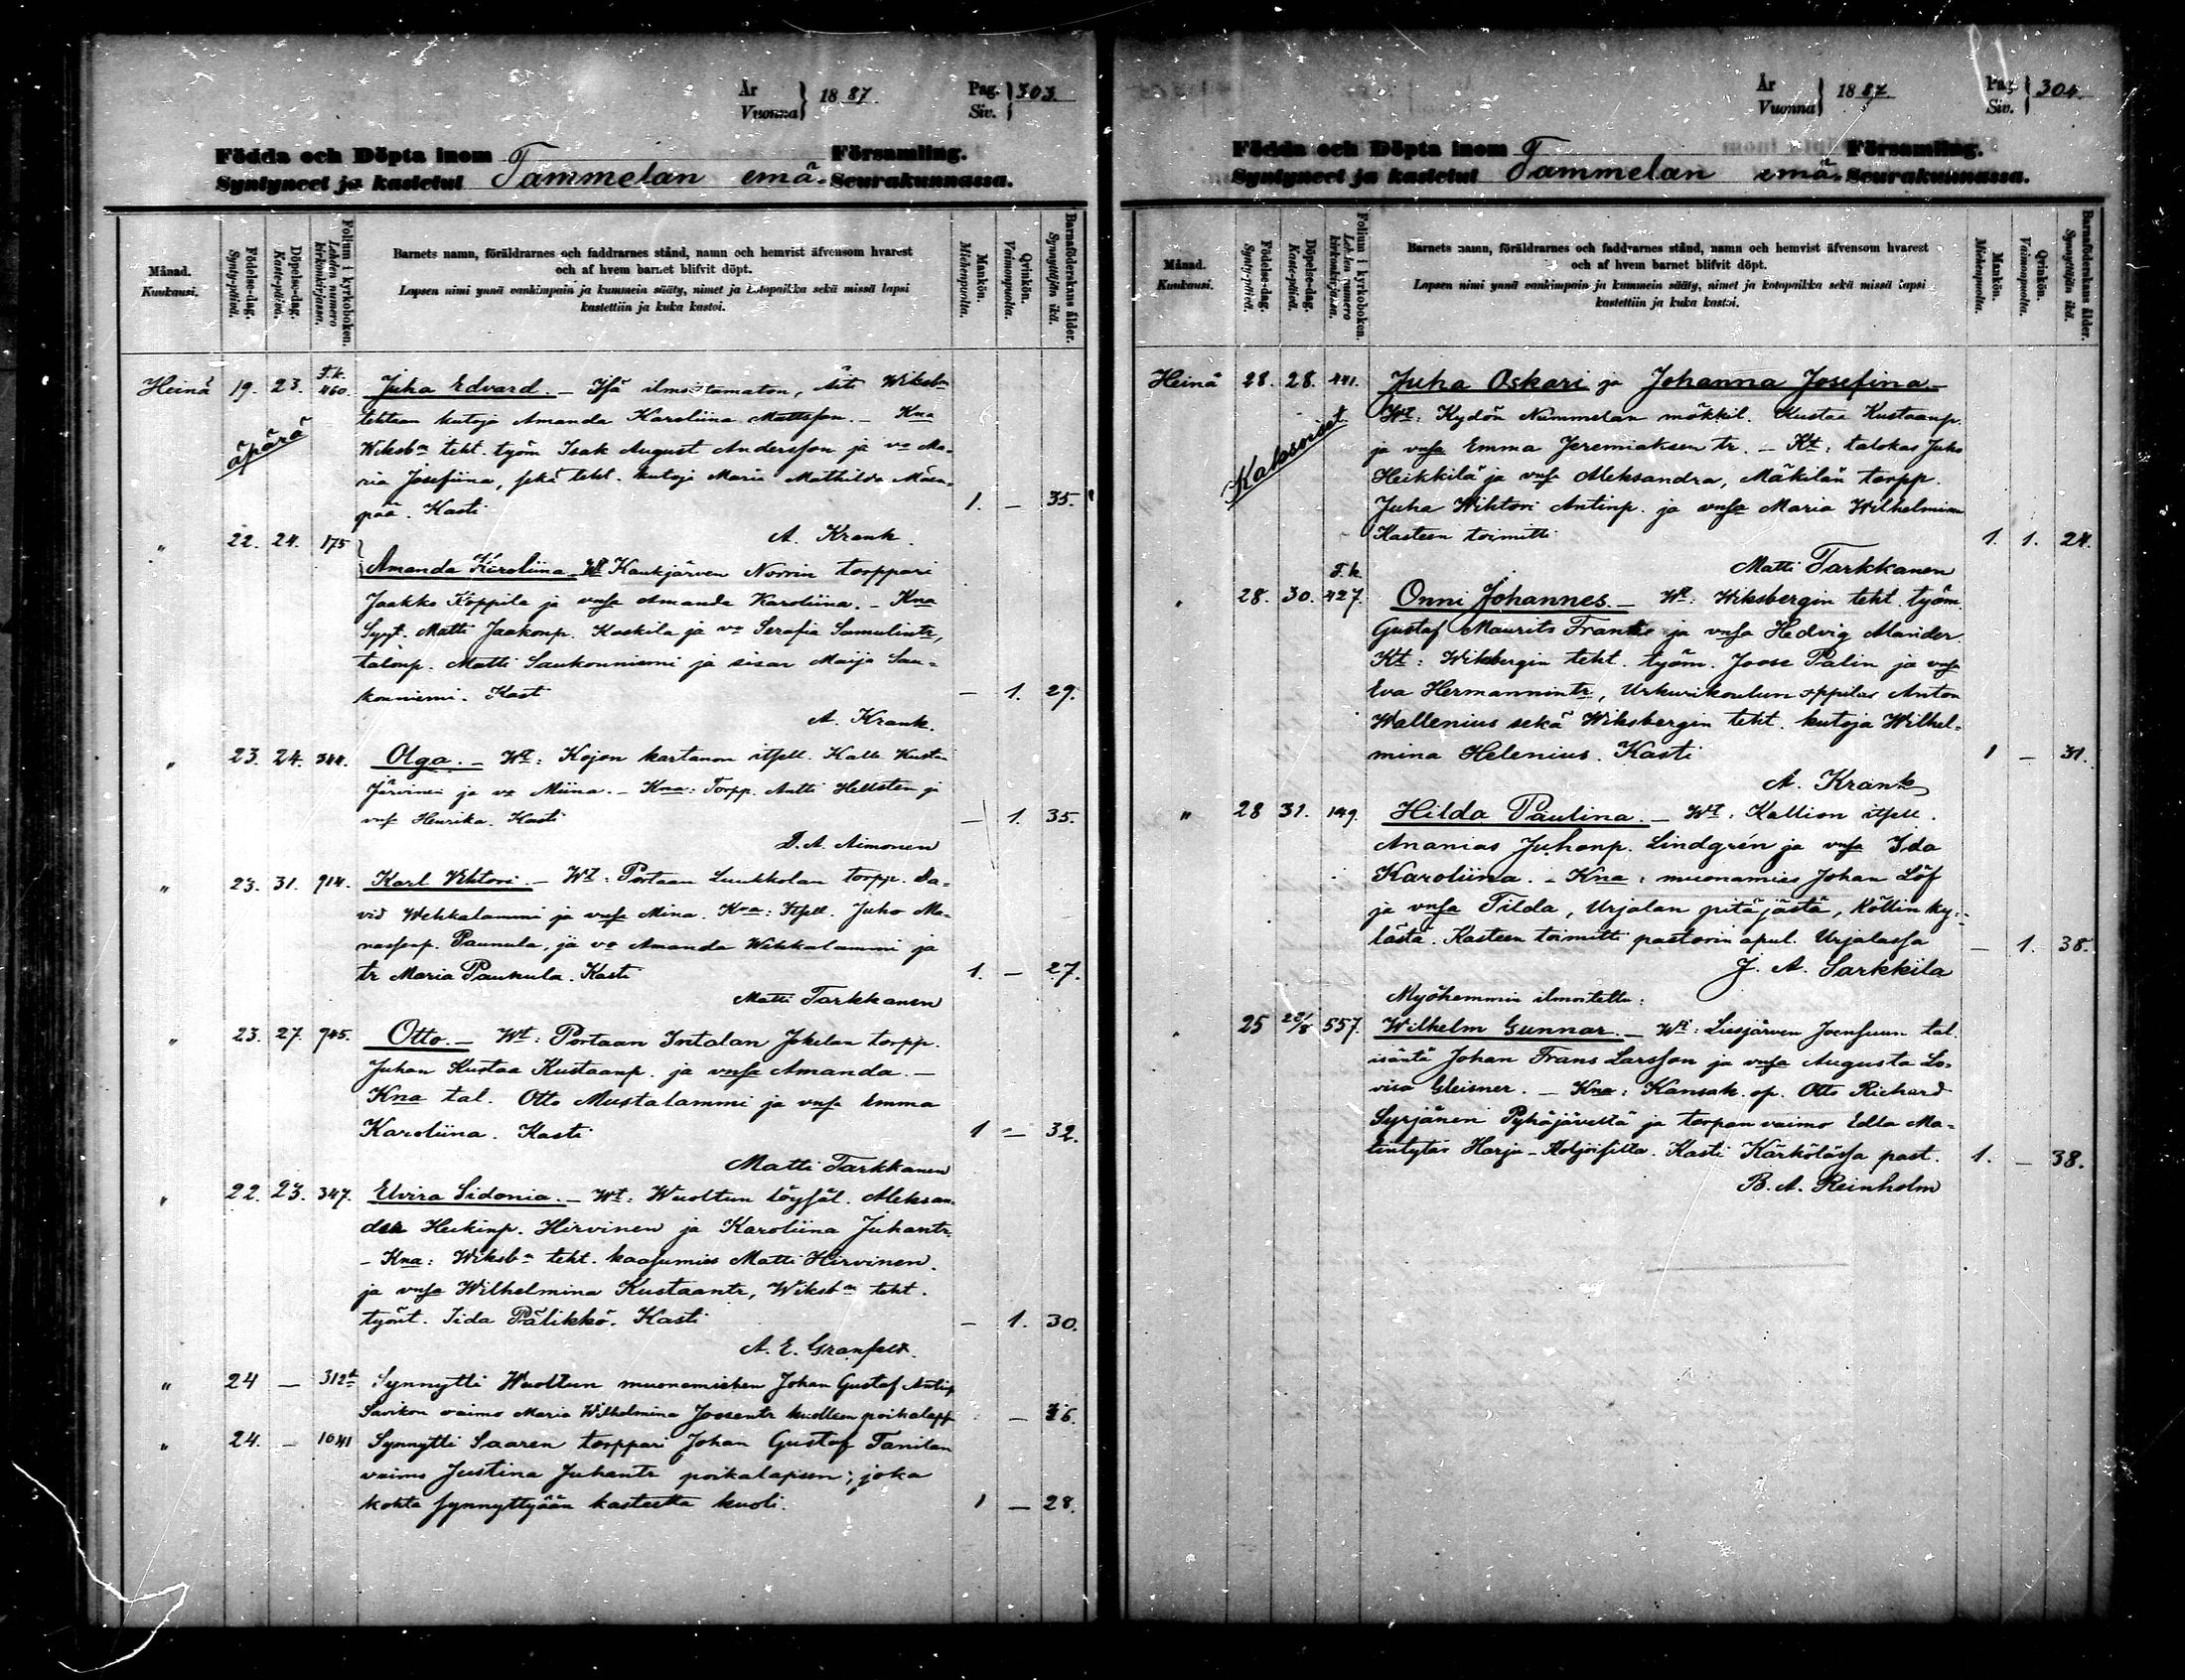 År
Vuonna } 1887. Pag.
Siv. } 303.
Födda och Döpta inom Församling.
Syntyneet ja kastetut Tammelan emä- Seurakunnassa.
Månad.
Kuukausi.
Födelse-dag.
Synty-päivä.
Döpelse-dag.
Kaste-päivä.
Folium i kyrkoboken.
Lehden numero kirkonkirjassa.
Barnets namn, föräldrarnes och faddrarnes stånd, namn och hemvist äfvensom hvarest
och af hvem barnet blifvit döpt.
Lapsen nimi ynnä vanhimpain ja kummein sääty, nimet ja kotopaikka sekä missä lapsi
kastettiin ja kuka kastoi.
Mankön.
Miehenpuolta.
Qvinkön.
Vaimonpuolta.
Barnaföderskans ålder.
Synnyttäjän ikä.
Heinä 19. 23. T.k. 460. Juha Edvard. – Isä ilmoittamaton, äiti Wiksb:n
tehtaan kutoja Amanda Karoliina Mattsson. – Kna
äpärä Wiksb:n teht. työm Isak August Andersson ja vo Ma-
ria Josefiina, sekä teht. kutoja Maria Mathilda Mäen-
pää. Kasti 1. – 35.
A. Krank.
" 22. 24. 175 Amanda Karoliina. Wt Kaukjärven Norrin torppari
Jaakko Koppila ja vnsa Amanda Karoliina. – Kna
Syyt. Matti Jaakonp. Kaskila ja vo Serafia Samulintr,
talonp. Matti Saukonniemi ja sisar Maija Sau-
konniemi. Kast – 1. 29.
A. Krank.
" 23. 24. 344. Olga. – Wt: Kojon kartanon itsell. Kalle Kusta
Järvinen ja vo Miina. – Kna: Torpp. Antti Hellsten ja
vnsa Henrika. Kasti – 1. 35.
D. A. Aimonen
" 23. 31. 914. Karl Vihtori. – Wt: Portaan Luukkolan torpp. Da-
vid Wehkalammi ja vnsa Mina. Kna: Itsell. Juho Ma-
nassenp. Paunula, ja vo Amanda Wehkalammi ja
tr Maria Paunula. Kasti 1. – 27.
Matti Tarkkanen
" 23. 27. 945. Otto. – Wt: Portaan Intalan Jokelan torpp.
Juhan Kustaa Kustaanp. ja vnsa Amanda. –
Kna tal. Otto Mustalammi ja vnsa Emma
Karoliina. Kasti 1 – 32.
Matti Tarkkanen
" 22. 23. 347. Elvira Sidonia. – Wt: Wuoltun löysäl. Aleksan-
der Heikinp. Hirvinen ja Karoliina Juhantr.
– Kna: Wiksb:n teht. kaasumies Matti Hirvinen.
ja vnsa Wilhelmina Kustaantr, Wiksb:n teht.
työnt. Iida Pälikkö. Kasti – 1. 30.
A. E. Granfelt.
" 24 – 312 Synnytti Wuoltun muonamiehen Johan Gustaf Antinp
Savikon vaimo Maria Wilhelmina Joosentr kuolleen poikalaps –
" 24. – 1041 Synnytti Saaren torppari Johan Gustaf Tanilan
vaimo Justina Juhantr poikalapsen; joka
kohta synnyttyään kasteetta kuoli. 1 – 28.
År
Vuonna } 1887. Pag.
Siv. } 304.
Födda och Döpta inom Församling.
Syntyneet ja kastetut Tammelan emä- Seurakunnassa.
Månad.
Kuukausi.
Födelse-dag.
Synty-päivä.
Döpelse-dag.
Kaste-päivä.
Folium i kyrkoboken.
Lehden numero kirkonkirjassa.
Barnets namn, föräldrarnes och faddrarnes stånd, namn och hemvist äfvensom hvarest
och af hvem barnet blifvit döpt.
Lapsen nimi ynnä vanhimpain ja kummein sääty, nimet ja kotopaikka sekä missä lapsi
kastettiin ja kuka kastoi.
Mankön.
Miehenpuolta.
Qvinkön.
Vaimonpuolta.
Barnaföderskans ålder.
Synnyttäjän ikä.
Heinä 28. 28. 441. Juha Oskari ja Johanna Josefina –
Kaksoiset Wt: Kydön Nummelan mökkil. Kustaa Kustaanp.
ja vnsa Emma Jeremiaksen tr. – Kt: talokas Juho
Heikkilä ja vnsa Aleksandra, Mäkilän torpp.
Juha Wihtori Antinp. ja vnsa Maria Wilhelmina
Kasteen toimitti 1. 1. 24.
Matti Tarkkanen
" 28. 30. T.k. 427. Onni Johannes. – Wt: Wiksbergin teht. työm.
Gustaf Maurits Frants ja vnsa Hedvig Alander.
Kt: Wiksbergin teht. työm. Joose Palin ja vnsa
Eva Hermannintr, Urkurikoulun oppilas Anton
Wallenius sekä Wiksbergin teht. kutoja Wilhel-
mina Helenius. Kasti 1 – 31.
A. Krank
" 28 31. 149. Hilda Paulina. – Wt: Kallion itsell.
Ananias Juhonp. Lindgrén ja vnsa Ida
Karoliina. – Kna: muonamies Johan Löf
ja vnsa Tilda, Urjalan pitäjästä, Köllin ky-
lästä. Kasteen toimitti pastorin apul. Urjalassa – 1. 38.
J. A. Sarkkila
Myöhemmin ilmoitettu:
" 25 28/8 557. Wilhelm Gunnar. – Wt: Liesjärven Joensuun tal.
isäntä Johan Frans Larsson ja vnsa Augusta Lo-
visa Gleisner. – Kna: Kansak. op. Otto Richard
Syrjänen Pyhäjäveltä ja torpan vaimo Edla Ma-
tintytär Harju-Holjoisilta. Kasti Kärkölässä past. 1. – 38.
B. A. Reinholm